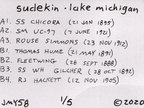 sudekin · lake michigan
A1. SS CHICORA (21 JAN 1895)
A2. SM UC-97 (7 JUNE 1921)
A3. ROUSE SIMMONS (23 NOV 1912)
B1. THOMAS HUME (21 MAY 1891)
B2. FLEETWING (26 SEPT 1888)
B3. SS WH GILCHER (28 OCT 1892)
B4. RJ HACKETT (12 NOV 1905)
JMY58 1/5 ©2020